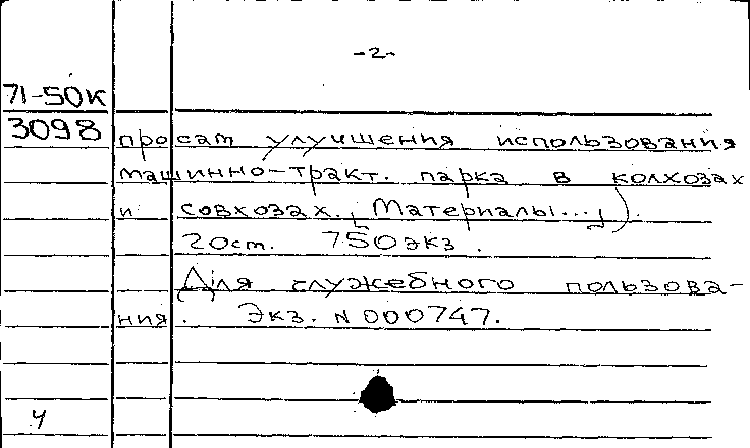 -2-
71-50К
3098
просам улучшения использования
машинно-тракт. парка в колхозах
и совхозах. [Материалы...]).
20см. 750 экз.
Для служебного пользова-
ния. Экз. N 000747.
4